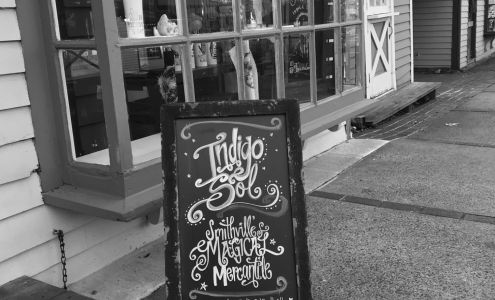 Indigo
&
Sol
Smithville's
Magical
Mercantile